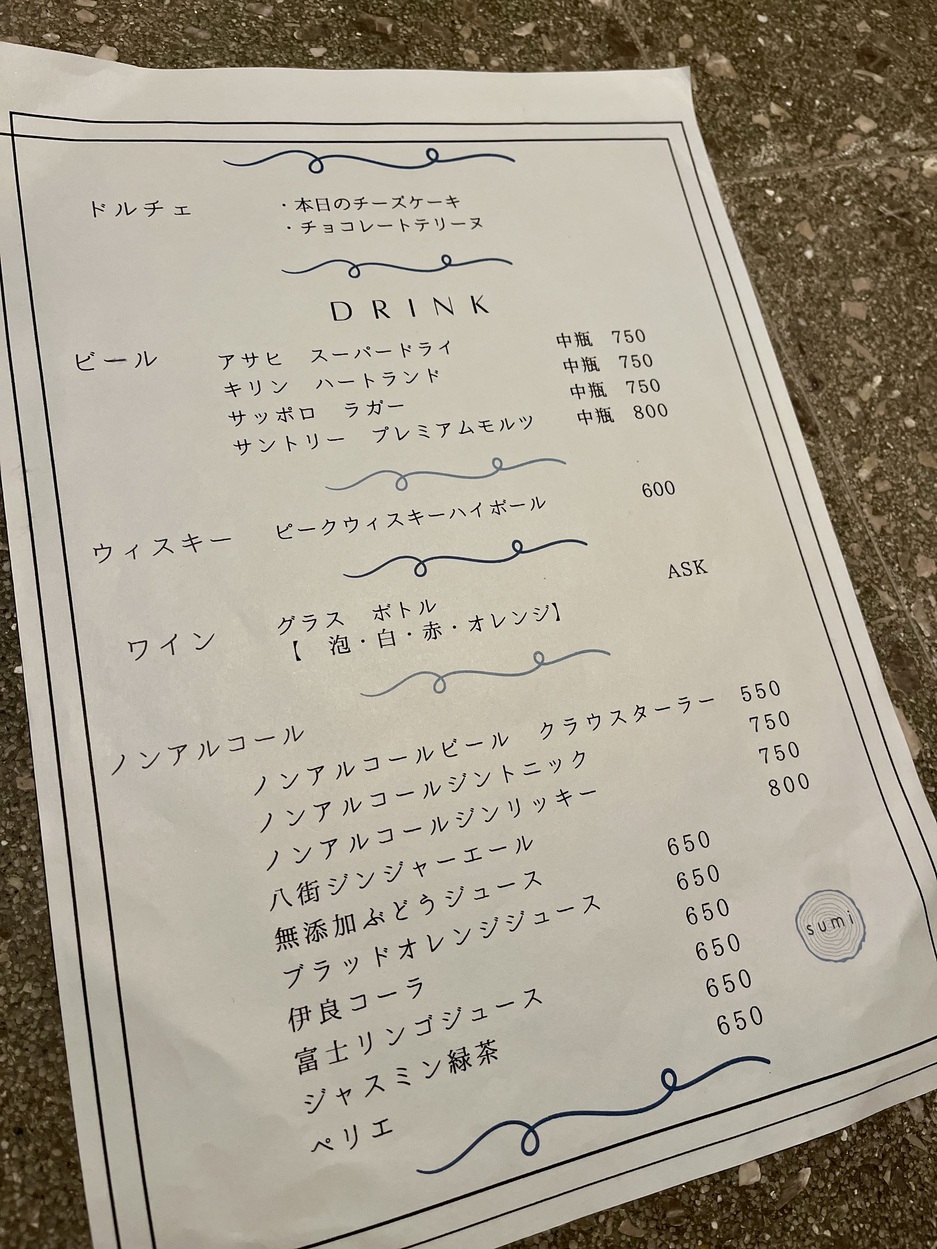 ドルチェ ・本日のチーズケーキ
・チョコレートテリーヌ
DRINK
ビール アサヒ　スーパードライ 中瓶 750
キリン　ハートランド 中瓶 750
サッポロ　ラガー 中瓶 750
サントリー　プレミアムモルツ 中瓶 800
ウィスキー ピークウィスキーハイボール 600
ワイン グラス　ボトル ASK
【　泡・白・赤・オレンジ】
ノンアルコール
ノンアルコールビール　クラウスターラー 550
ノンアルコールジントニック 750
ノンアルコールジンリッキー 750
八街ジンジャーエール 800
無添加ぶどうジュース 650
ブラッドオレンジジュース 650
伊良コーラ 650
富士リンゴジュース 650
ジャスミン緑茶 650
ペリエ 650
sumi